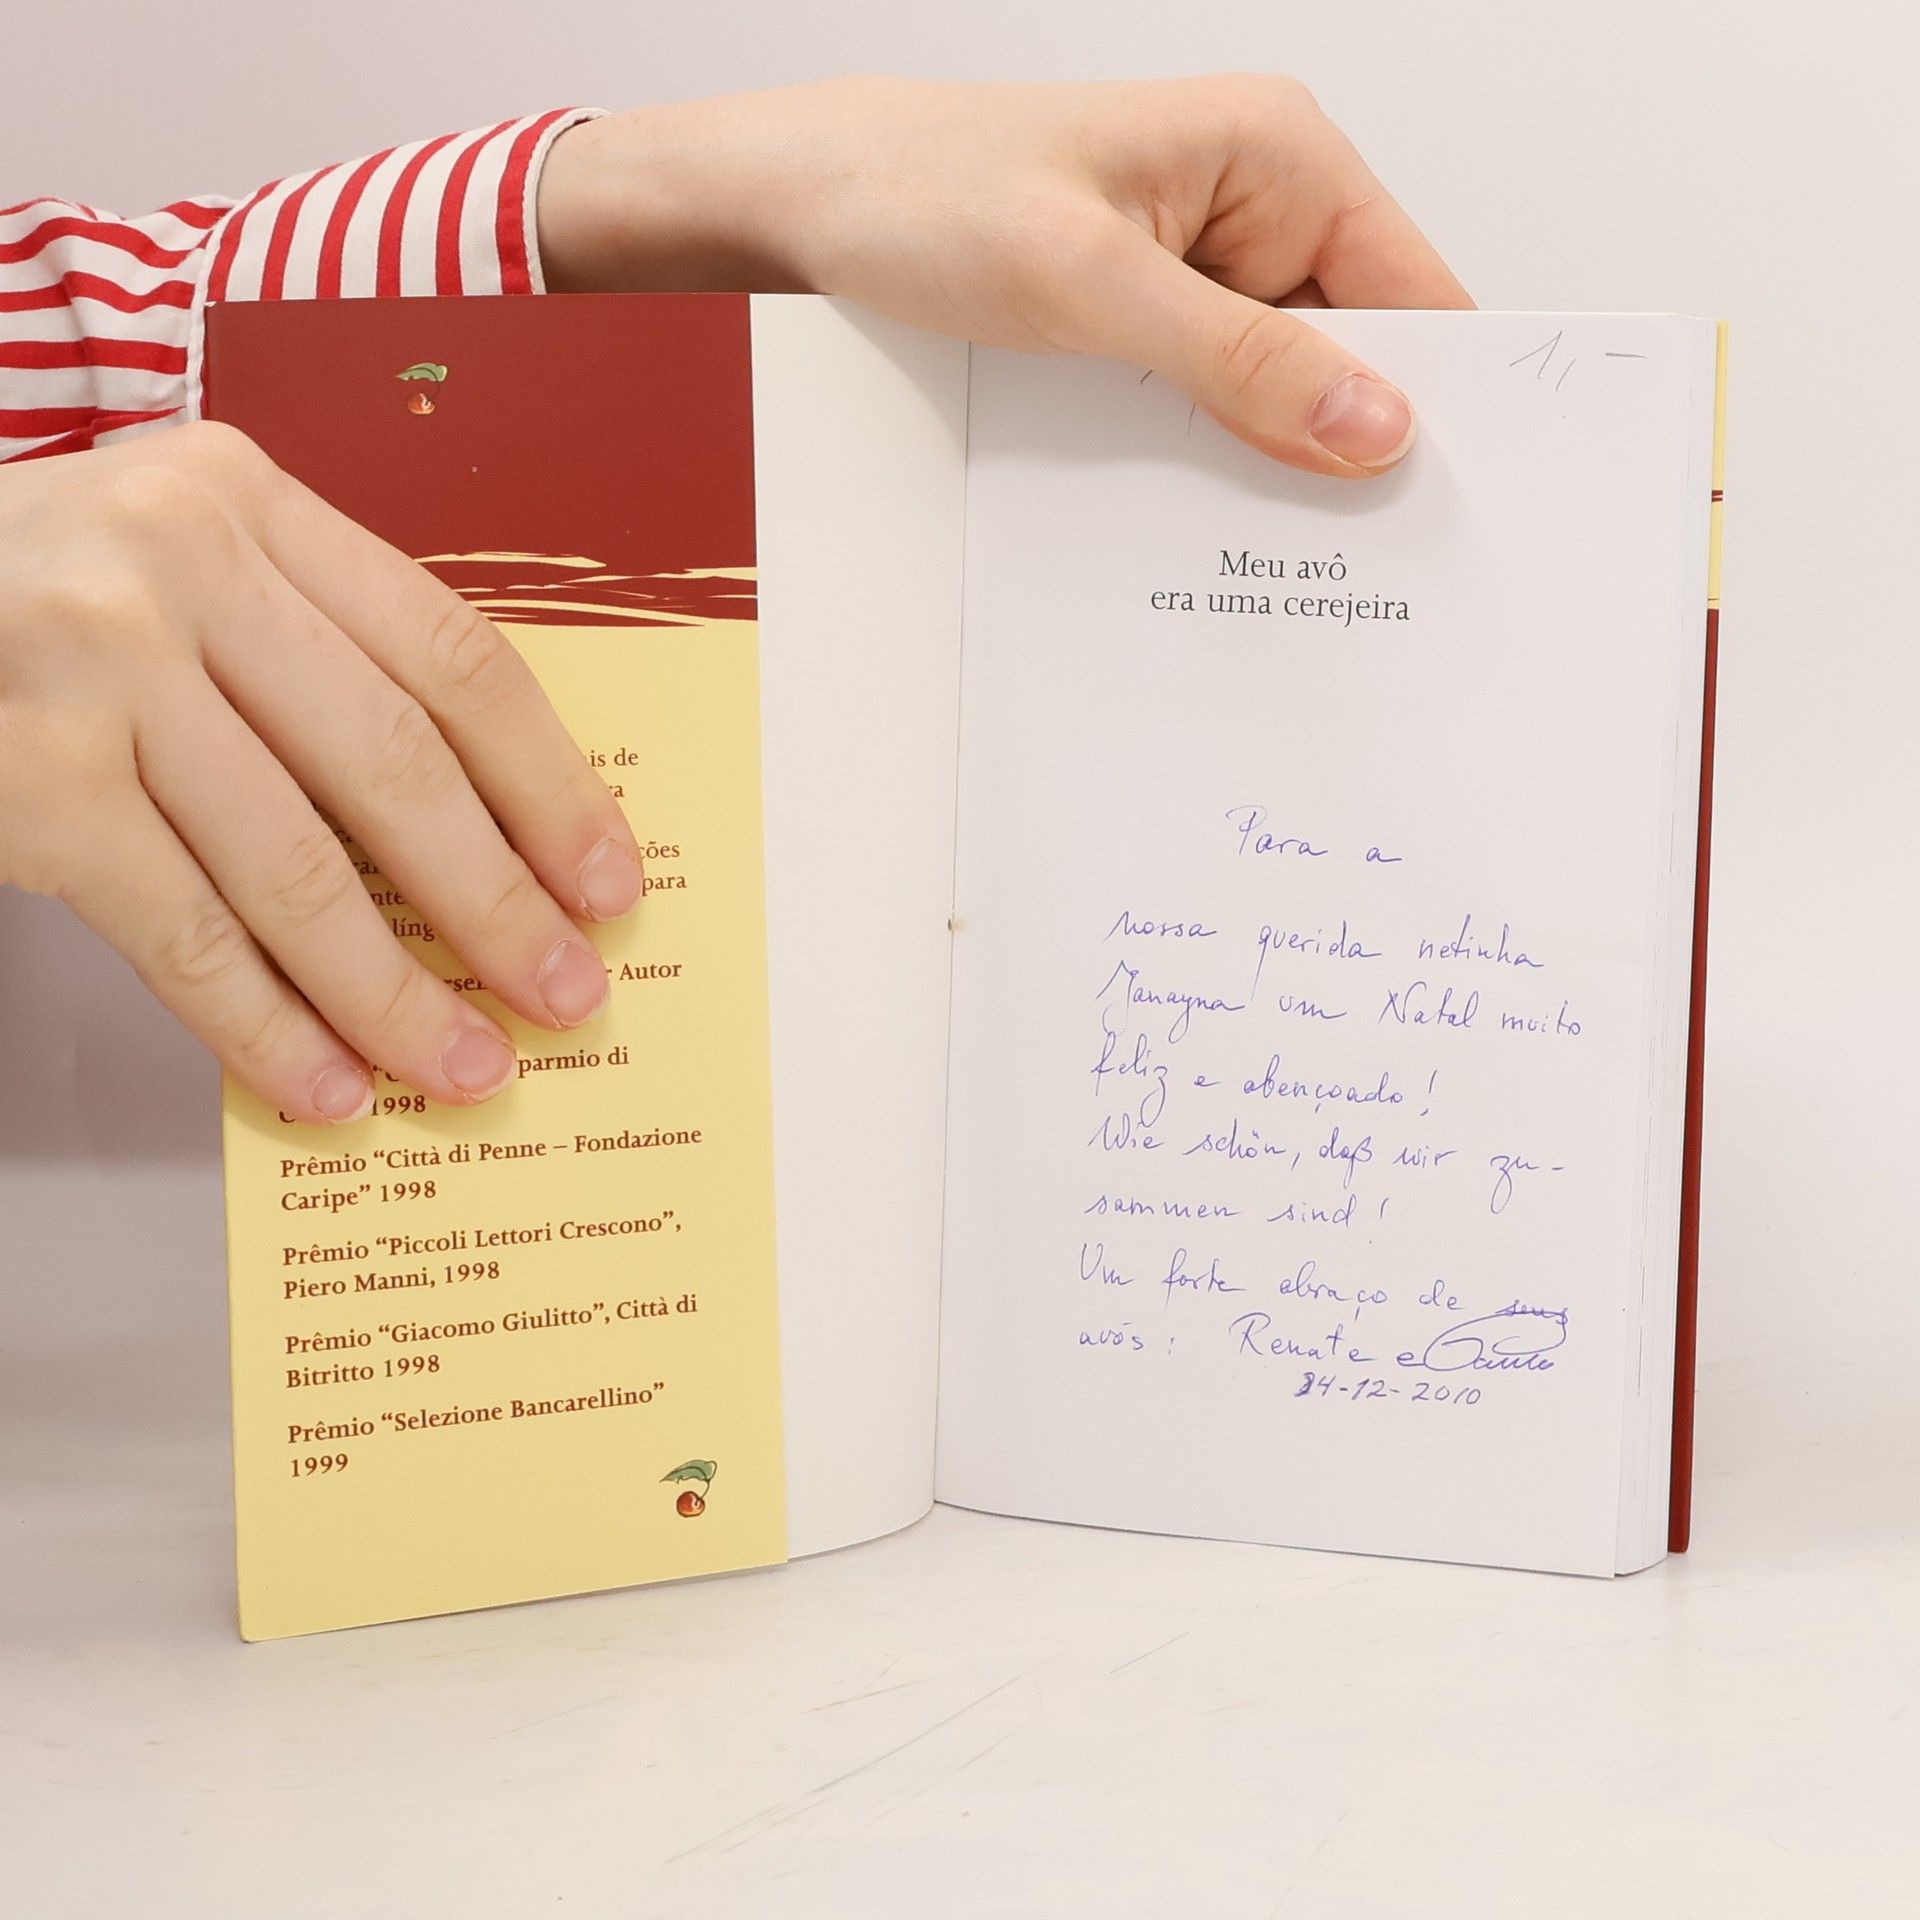 is de
ções
para
líng
Autor
parmio di
1998
Prêmio “Città di Penne – Fondazione
Caripe” 1998
Prêmio “Piccoli Lettori Crescono”,
Piero Manni, 1998
Prêmio “Giacomo Giulitto”, Città di
Bitritto 1998
Prêmio “Selezione Bancarellino”
1999
1,–
Meu avô
era uma cerejeira
Para a
nossa querida netinha
Janayna um Natal muito
feliz e abençoado!
Wie schön, daß wir zu-
sammen sind!
Um forte abraço de seus
avós: Renate e Paulo
24-12-2010